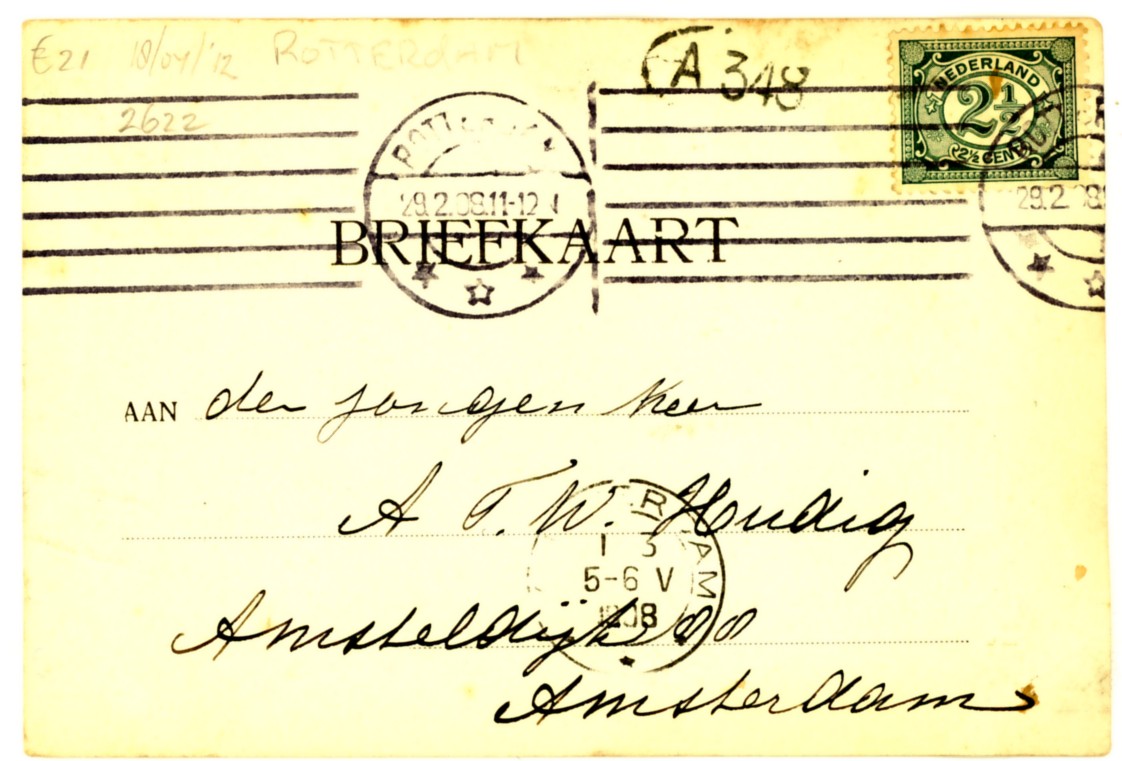 €21 18/04/'12 ROTTERDAM
2622
A 348
NEDERLAND
2½
2½ CENT
ROTTERDAM
29.2.08.11-12
29.2.08
BRIEFKAART
AAN den jongen Heer
A F. W. Hudig
Amsteldijk 88
Amsterdam
R AM
1 3
5-6 V
1908